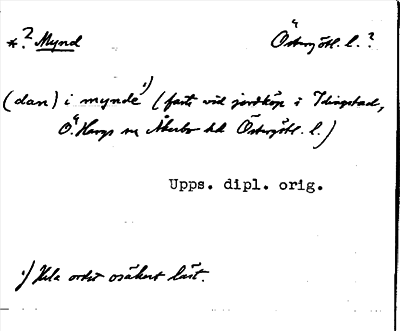 *? Mynd Östergötl. l.?
(dan) i mynde 1) (fasti vid jordköp i Idingstad,
Ö. Hargs sn Åkerbo hd Östergötl. l.)
Upps. dipl. orig.
1) Hela ordet osäkert läst.